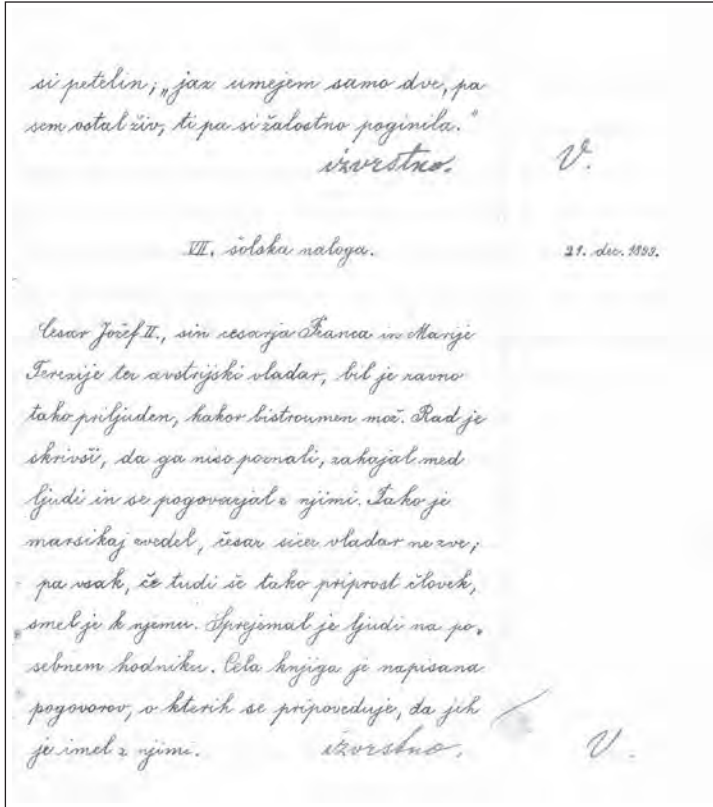 si petelin; „jaz umejem samo dve, pa
sem ostal živ, ti pa si žalostno poginila.“
izvrstno. V.
VII. šolska naloga. 21. dec. 1893.
Cesar Jožef II., sin cesarja Franca in Marije
Terezije ter avstrijski vladar, bil je ravno
tako priljuden, kakor bistroumen mož. Rad je
skrivši, da ga niso poznali, zahajal med
ljudi in se pogovarjal z njimi. Tako je
marsikaj zvedel, česar sicer vladar ne zve;
pa vsak, če tudi še tako priprost človek,
smel je k njemu. Sprejemal je ljudi na po„
sebnem hodniku. Cela knjiga je napisana
pogovorov, o kterih se pripoveduje, da jih
je imel z njimi. izvrstno. V.